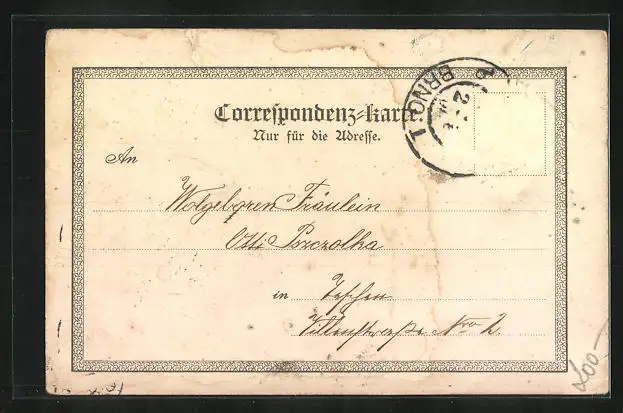 Correspondenz-Karte.
Nur für die Adresse.
BRNO 1
An
Wolgebgren Fräulein
Otti Pszczolka
in Teschen
Villenstrasse Nro 2.
200-